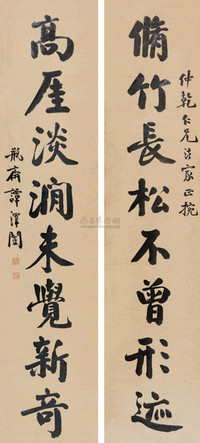 仲乾仁兄法家正捥
脩竹長松不曾形迹
高厓淡澗未覺新奇
瓶齋譚澤闓